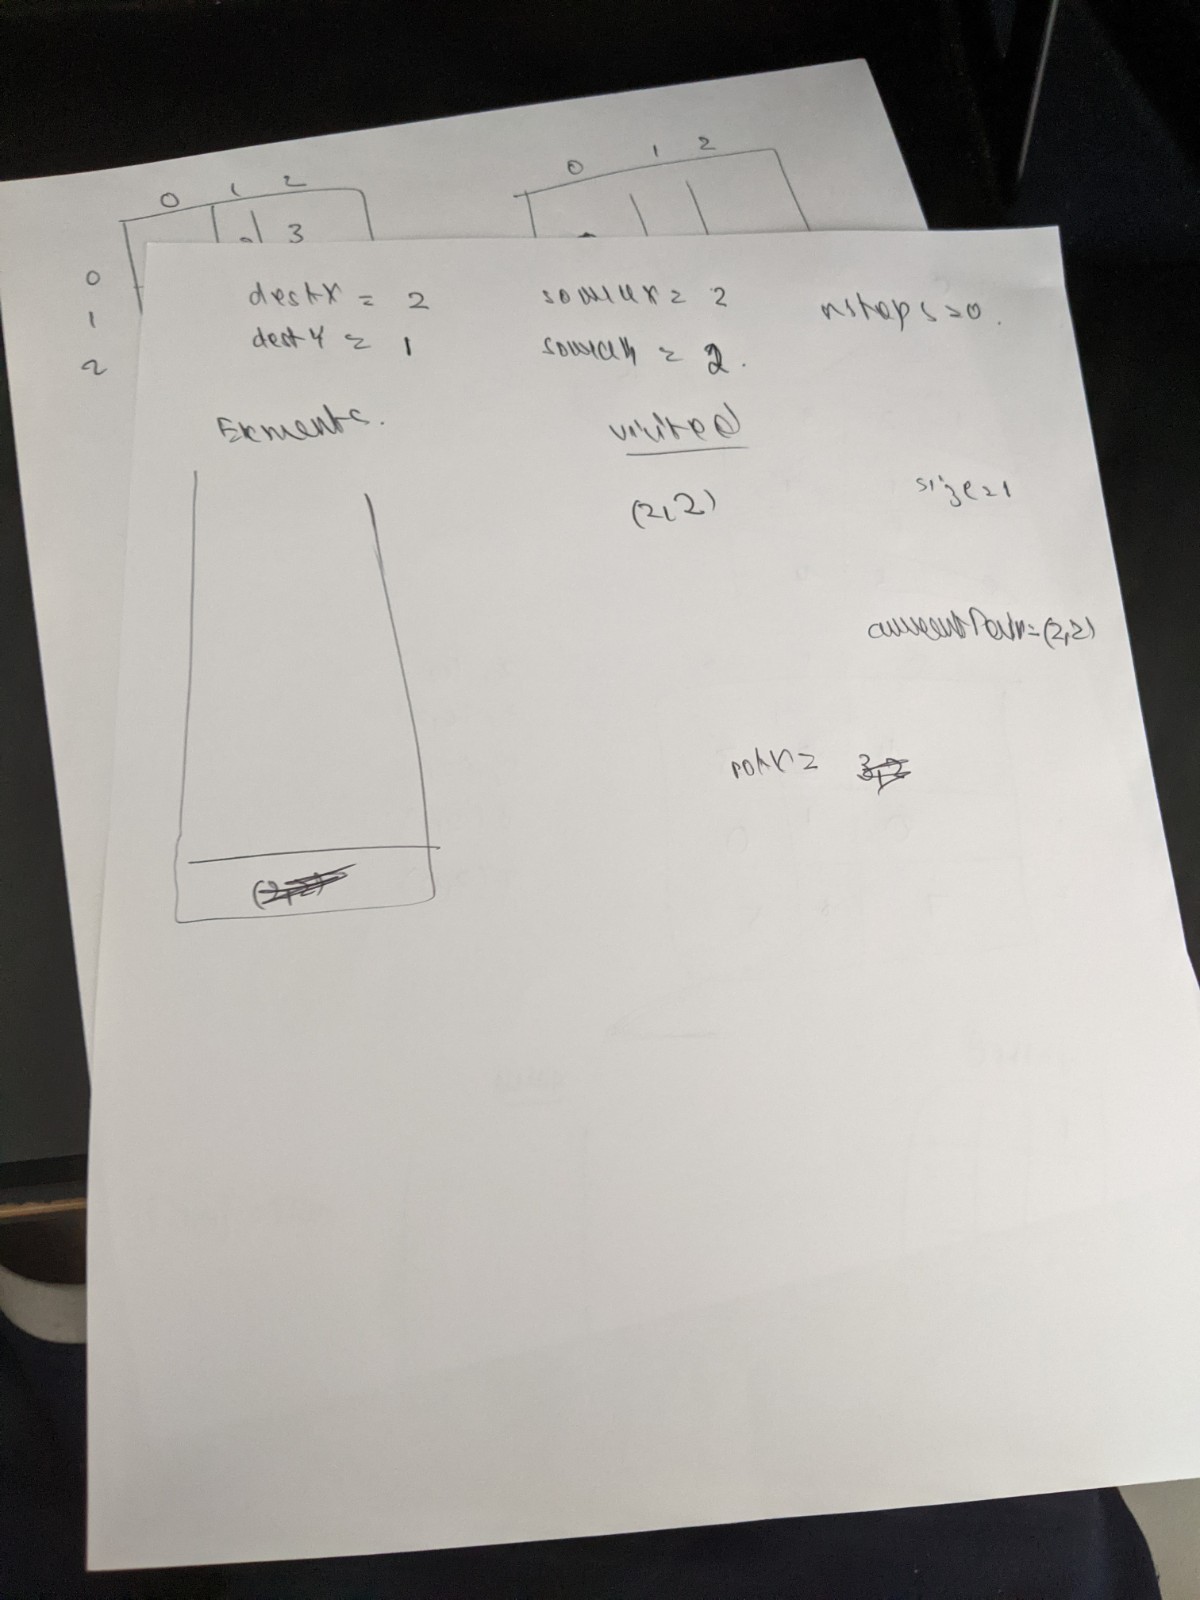 0 1 2
0 1 2
3
0
1
2
destX = 2
destY = 1
sourcex = 2
sourcey = 2.
nsteps = 0.
Elements.
visited
(2,2)
size = 1
currentPair = (2,2)
(2,2)